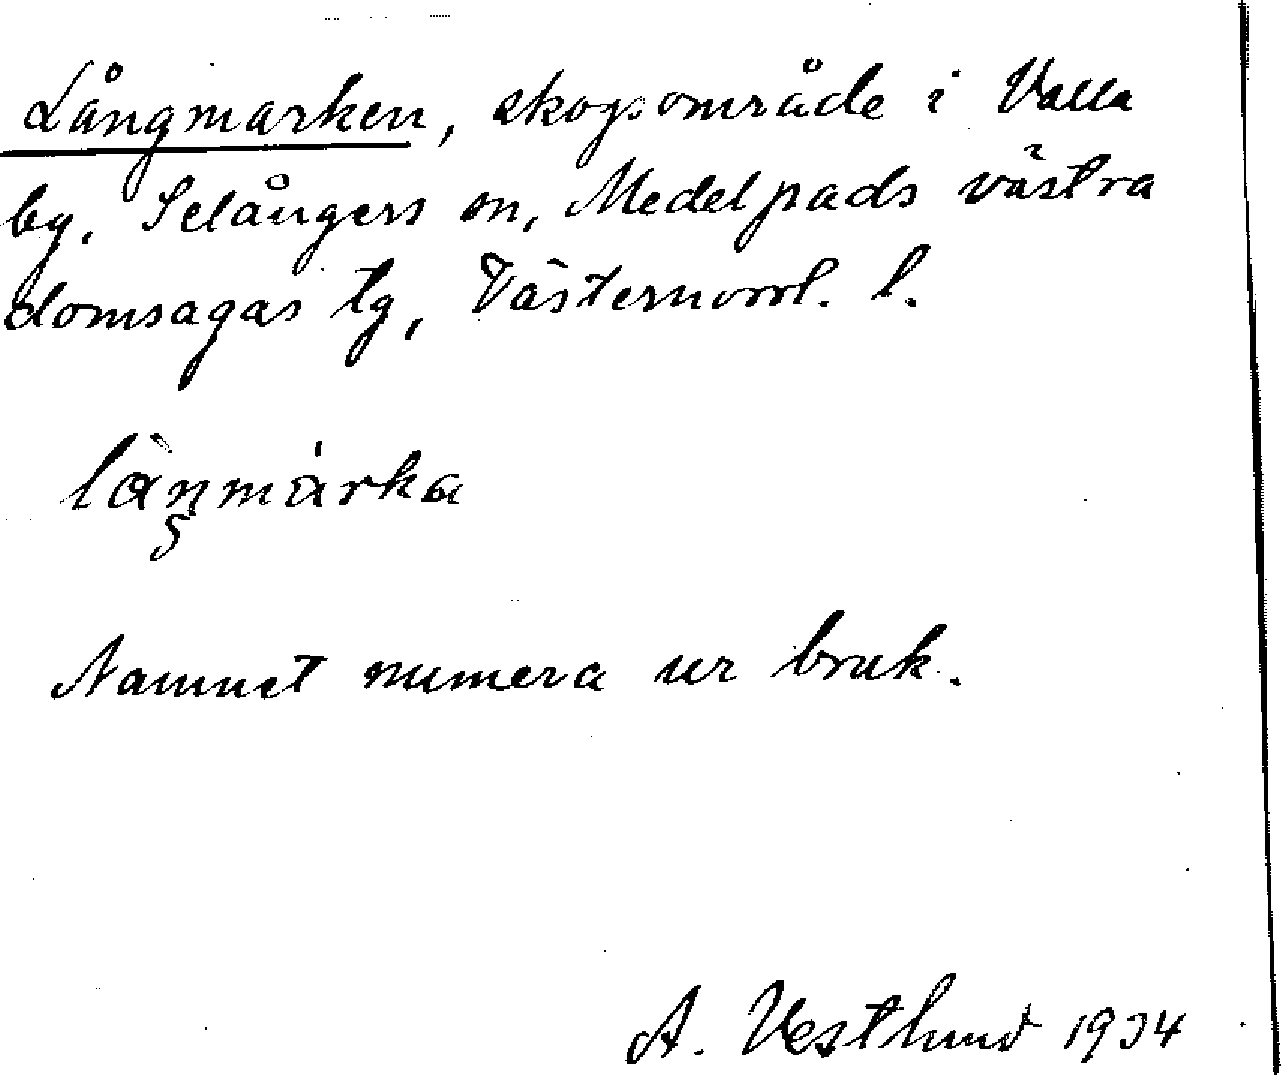 Långmarken, skogsområde i Valla
by, Selångers sn, Medelpads västra
domsagas tg, Västernorrl. l.
Namnet numera ur bruk.
A. Vestlund 1934